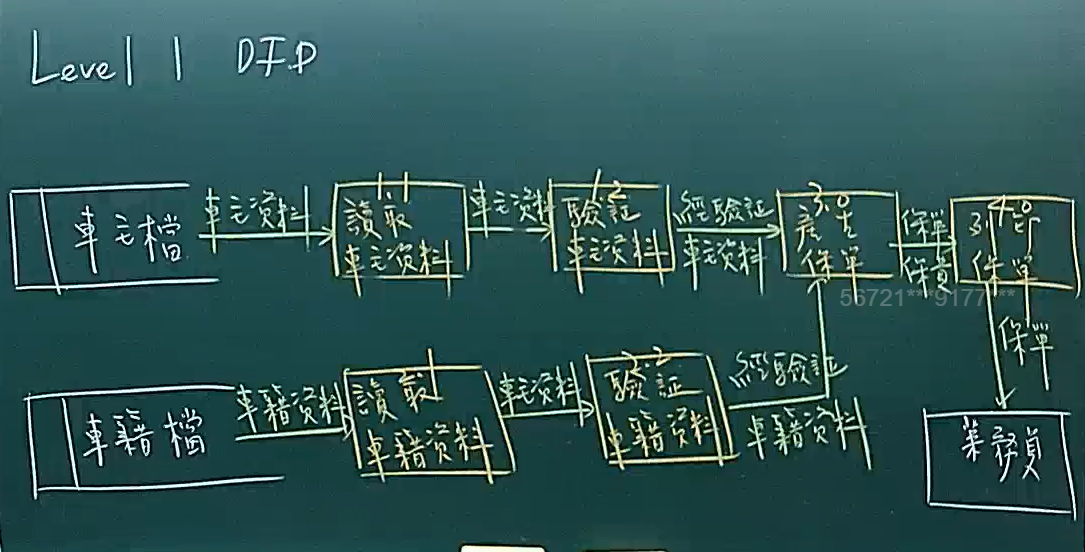 Level 1 DFD
車主檔
車主資料
1.1
讀取
車主資料
車主資料
1.2
驗証
車主資料
經驗証
車主資料
3.0
產生
保單
保單
保費
4.0
列印
保單
保單
業務員
車籍檔
車籍資料
讀取
車籍資料
車主資料
2.2
驗証
車籍資料
經驗証
車籍資料
56721***9177***